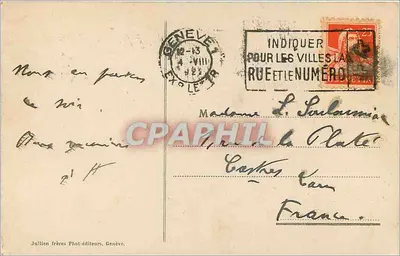 GENEVE 1
12-13
4 VIII
EXP. LETTR
INDIQUER
POUR LES VILLES LA
RUE ET LE NUMÉRO
Nous en parlons
ce soir.
Madame L.
rue de la Platé
Castres Tarn
France.
CPAPHIL
Jullien frères Phot-éditeurs, Genève.